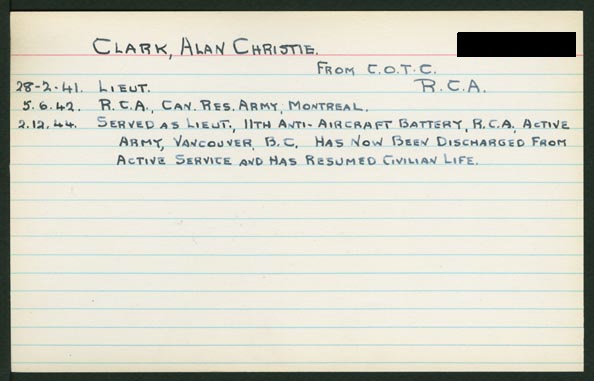 CLARK, ALAN CHRISTIE.
FROM C.O.T.C.
28-2-41. LIEUT. R.C.A.
5.6.42. R.C.A., CAN. RES. ARMY, MONTREAL.
2.12.44. SERVED AS LIEUT., 11TH ANTI-AIRCRAFT BATTERY, R.C.A. ACTIVE
ARMY, VANCOUVER, B.C. HAS NOW BEEN DISCHARGED FROM
ACTIVE SERVICE AND HAS RESUMED CIVILIAN LIFE.